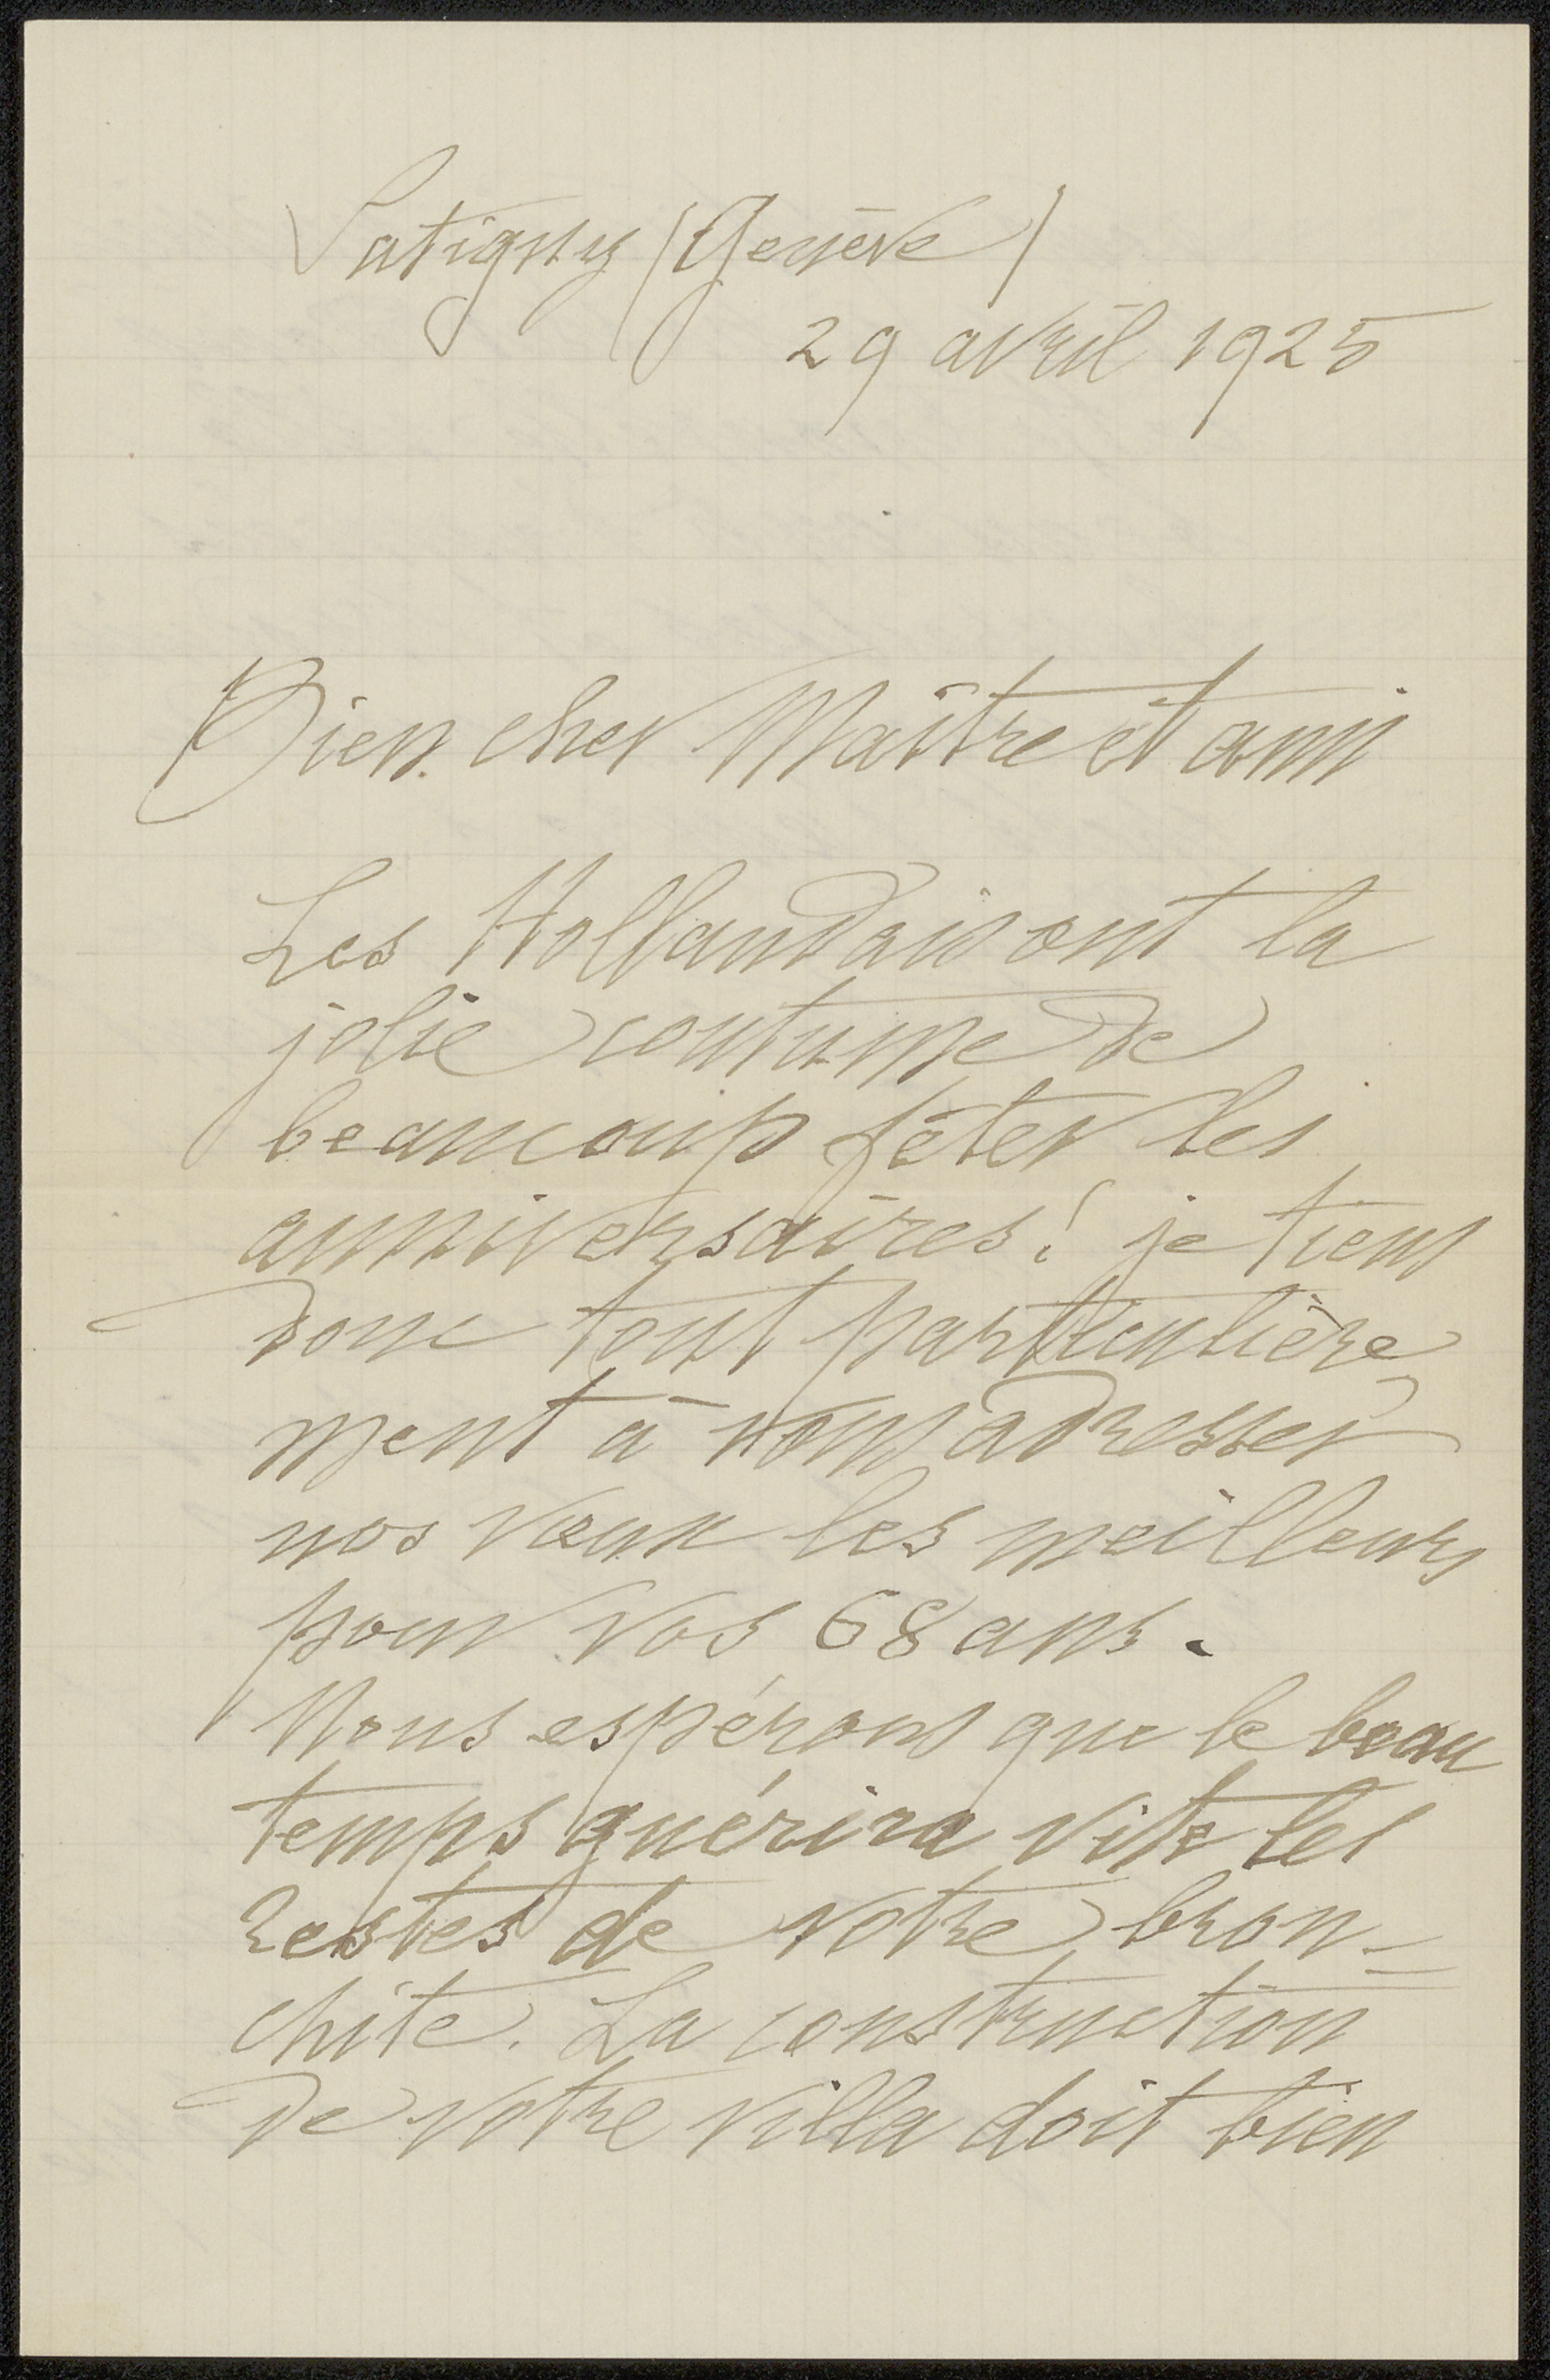 Satigny (Genève)
29 avril 1925
Bien cher Maître et ami
Les Hollandais ont la
jolie coutume de
beaucoup fêter les
anniversaires! je tiens
donc tout particulière-
ment à vous adresser
nos vœux les meilleurs
pour vos 68 ans.
Nous espérons que le beau
temps guérira vite les
restes de votre bron-
chite. La construction
de votre villa doit bien